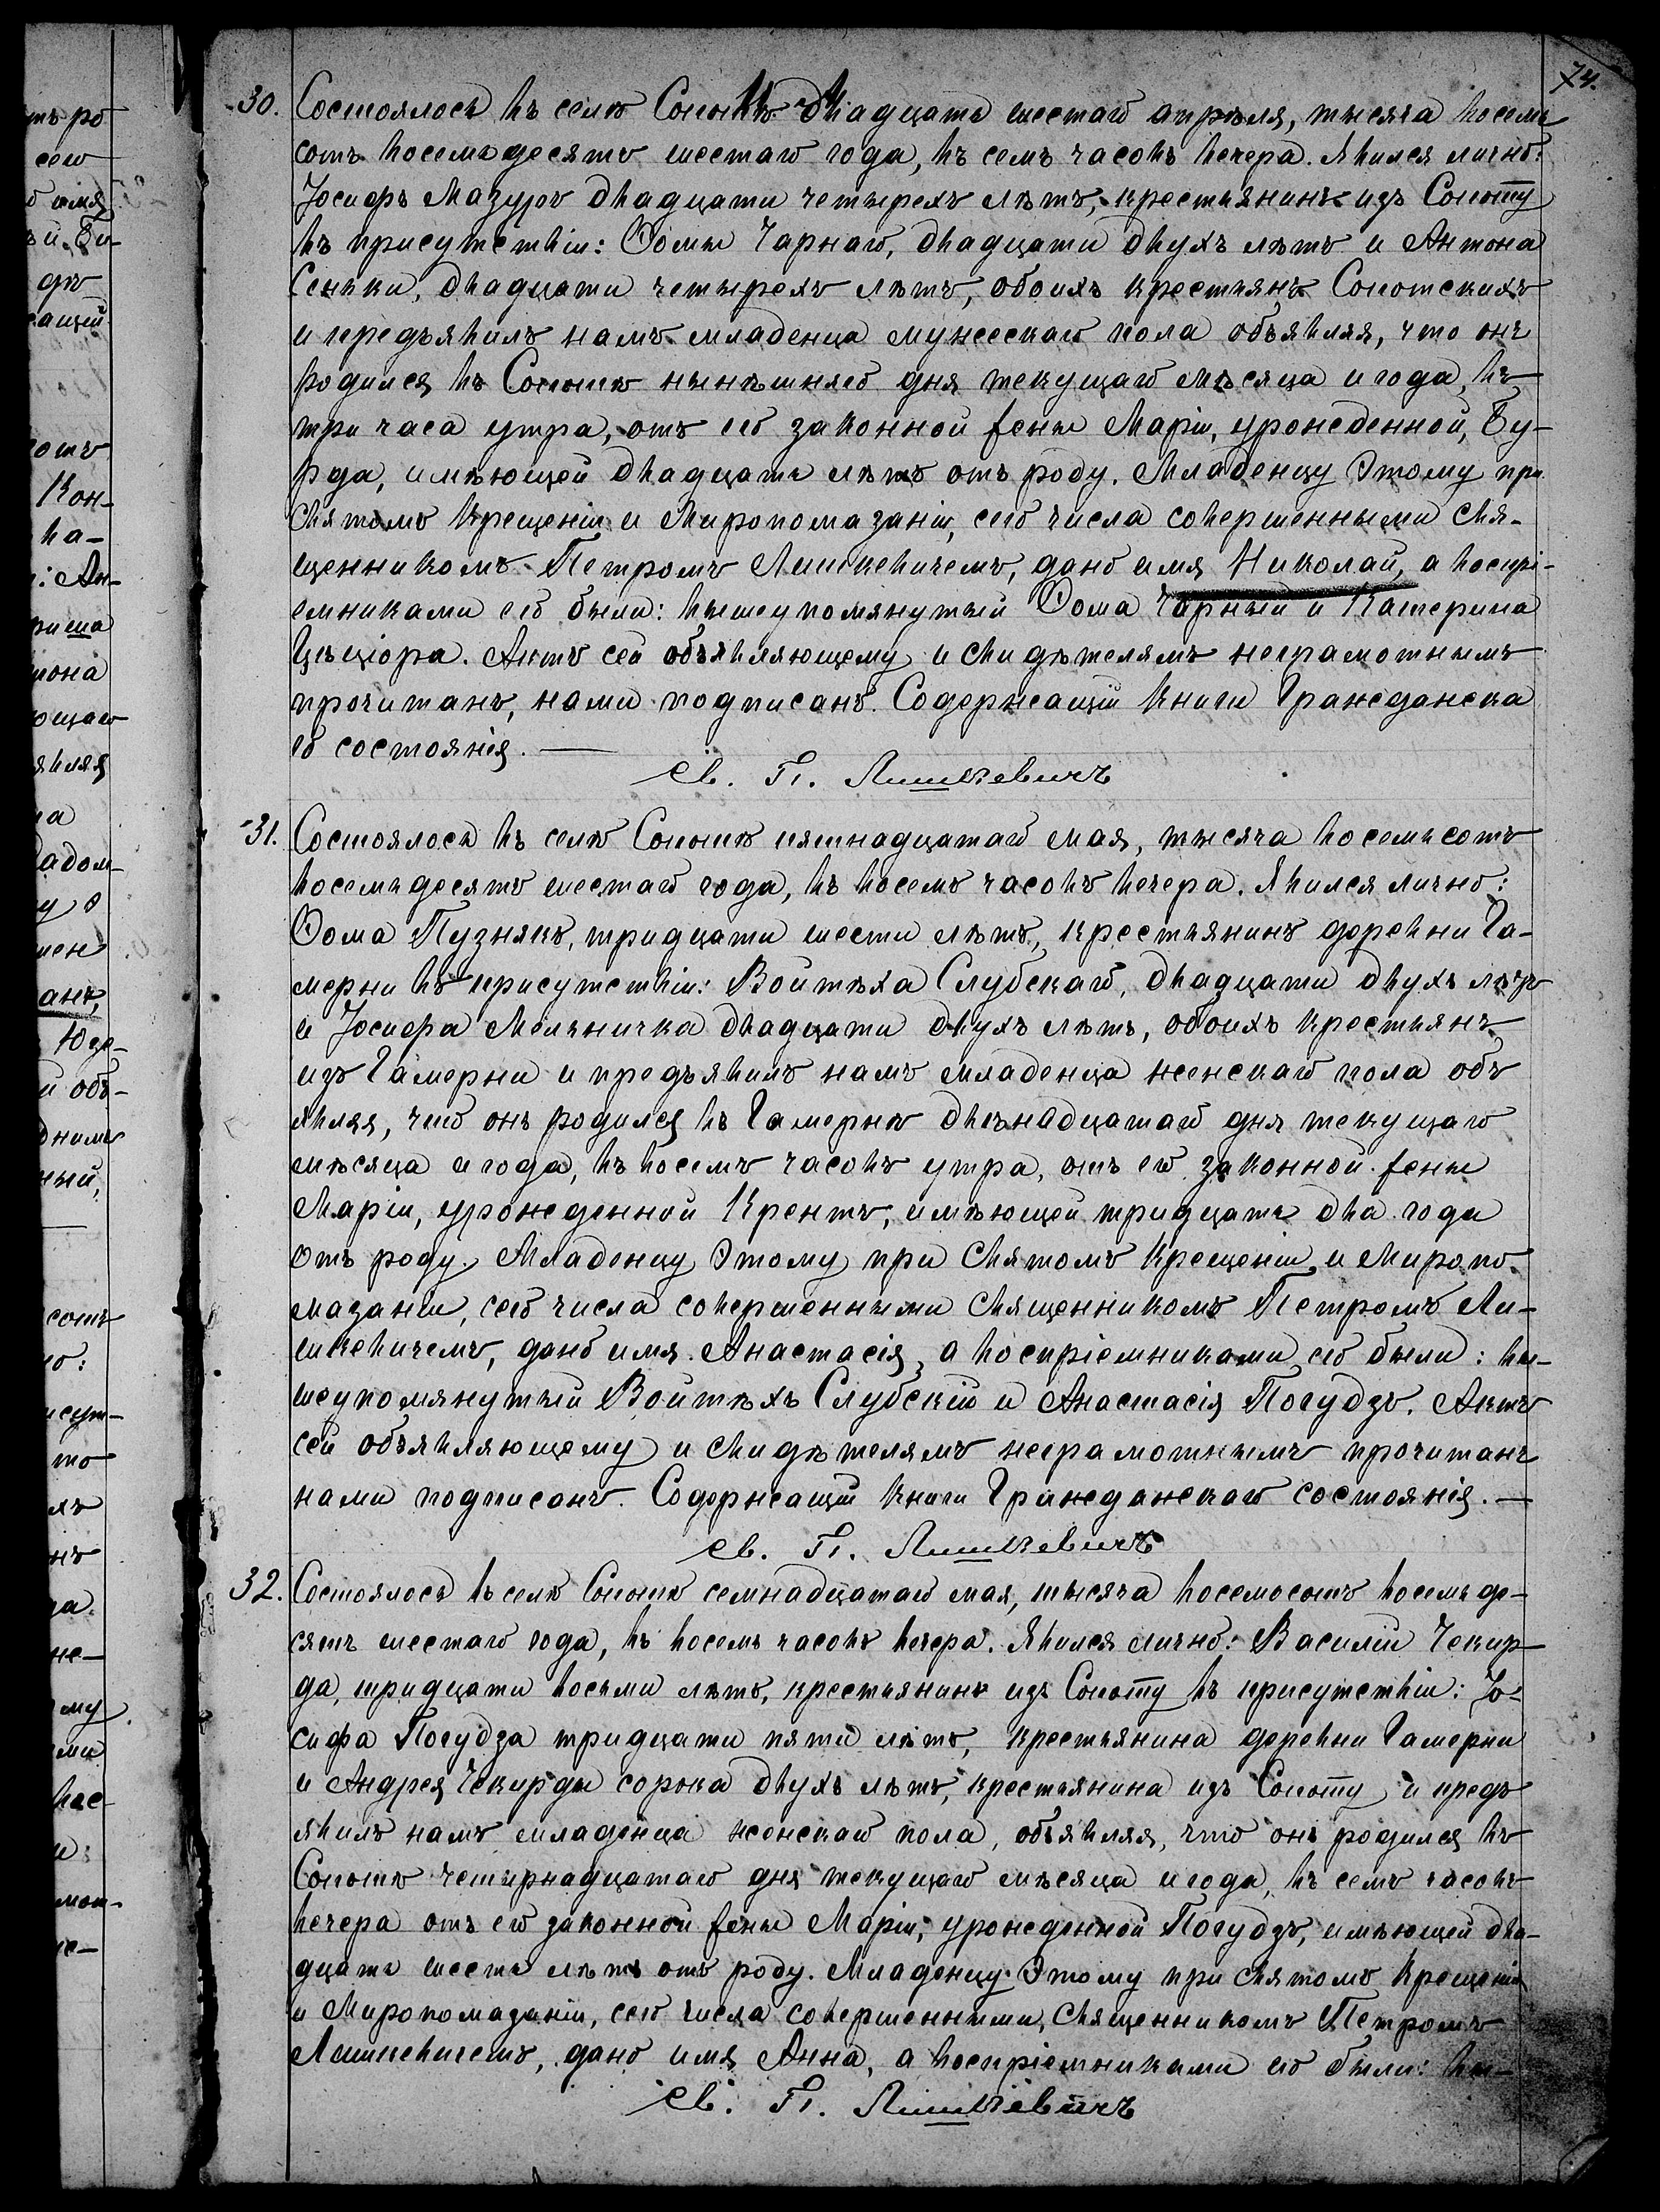 74.
30. Состоялось въ селѣ Сопотѣ двадцать шестаго апрѣля, тысяча восемь
сотъ восемьдесятъ шестаго года, въ семъ часовъ вечера. Явился лично:
Іосифъ Мазуръ двадцати четырехъ лѣтъ, крестьянинъ изъ Сопоту
въ присутствіи: Ѳомы Чарнаго, двадцати двухъ лѣтъ и Антона
Сеньки, двадцати четырехъ лѣтъ, обоихъ крестьянъ Сопотскихъ
и предъявилъ намъ младенца мужескаго пола объявляя, что онъ
родился въ Сопотѣ нынѣшняго дня текущаго мѣсяца и года, въ
три часа утра, отъ его законной жены Маріи, урожденной, Бу-
рда, имѣющей двадцать лѣтъ отъ роду. Младенцу этому при
святомъ крещеніи и Миропомазаніи, сего числа совершенными свя-
щенникомъ Петромъ Лишкевичемъ, дано имя Николай, а воспрі-
емниками его были: вышеупомянутый Ѳома Чарный и Катерина
Цѣціора. Актъ сей объявляющему и свидѣтелямъ неграмотнымъ
прочитанъ, нами подписанъ. Содержащій книги Гражданска
го состоянія. —
Св. П. Лишкевичъ
31. Состоялось въ селѣ Сопотѣ пятнадцатаго мая, тысяча восемьсотъ
восемьдесятъ шестаго года, въ восемъ часовъ вечера. Явился лично:
Ѳома Пузнякъ, тридцати шести лѣтъ, крестьянинъ деревни Га-
мерни въ присутствіи: Войтѣха Слубскаго, двадцати двухъ лѣтъ
и Іосифа Мельничка двадцати двухъ лѣтъ, обоихъ крестьянъ
изъ Гамерни и предъявилъ намъ младенца женскаго пола объ
являя, что онъ родился въ Гамернѣ двѣнадцатаго дня текущаго
мѣсяца и года, въ восемъ часовъ утра, отъ его законной жены
Маріи, урожденной Крентъ, имѣющей тридцать два года
отъ роду. Младенцу этому при святомъ крещеніи и Миропо-
мазаніи, сего числа совершенными священникомъ Петромъ Ли-
шкевичемъ, дано имя Анастасія, а воспріемниками его были: вы-
шеупомянутый Войтѣхъ Слубскій и Анастасія Погудзъ. Актъ
сей объявляющему и свидѣтелямъ неграмотнымъ прочитанъ
нами подписанъ. Содержащій книги Гражданскаго состоянія. —
Св. П. Лишкевичъ
32. Состоялось въ селѣ Сопотѣ семнадцатаго мая, тысяча восемосотъ восемьде-
сятъ шестаго года, въ восемъ часовъ вечера. Явился лично: Василій Чекир-
да, тридцати восьми лѣтъ, крестьянинъ изъ Сопоту въ присутствіи: Іо-
сифа Погудза тридцати пяти лѣтъ, крестьянина деревни Гамерни
и Андрея Чекирды сорока двухъ лѣтъ, крестьянина изъ Сопоту и предъ
явилъ намъ младенца женскаго пола, объявляя, что онъ родился въ
Сопотѣ четырнадцатаго дня текущаго мѣсяца и года, въ семъ часовъ
вечера отъ его законной жены Маріи, урожденной Погудзъ, имѣющей два-
дцать шесть лѣтъ отъ роду. Младенцу этому при святомъ крещеніи
и Миропомазаніи, сего числа совершенными, священникомъ Петромъ
Лишкевичемъ, дано имя Анна, а воспріемниками его были: вы-
Св. П. Лишкевичъ